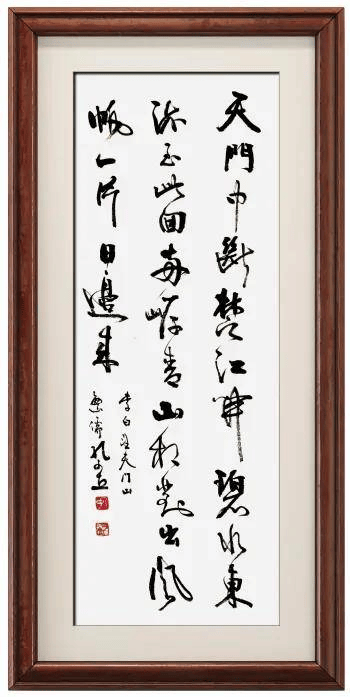 天門中斷楚江開碧水東
流至此回兩岸青山相對出孤
帆一片日邊來
李白望天门山